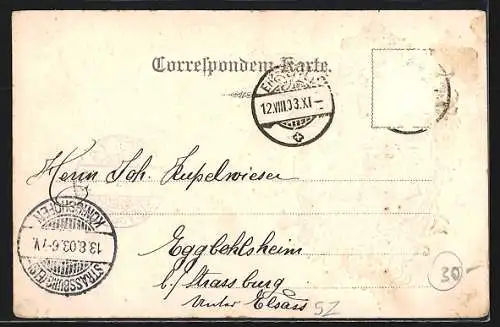 Correspondenz-Karte.
12.VIII.03.XI-
Herrn Joh. Kupelwieser
Eggbehlsheim
b/ Strassburg
Unter Elsass
KÖNIGSHOFEN
13.8.03.6-7V.
STRASSBURG (ELS.)
30-
SZ